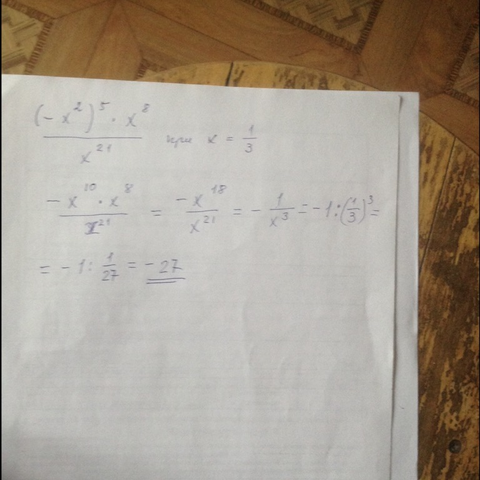 (-x²)⁵ · x⁸ / x²¹ при x = 1/3
-x¹⁰ · x⁸ / x²¹ = -x¹⁸ / x²¹ = - 1/x³ = -1 : (1/3)³ =
= -1 : 1/27 = -27